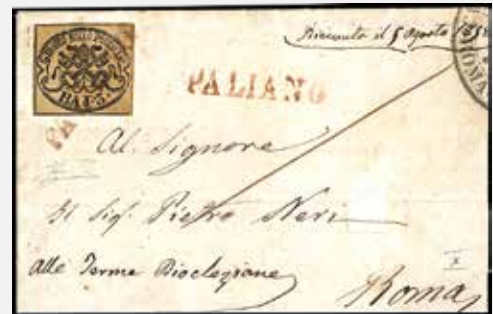 Ricevuto il 5 Agosto 185
ROMA
BAJ 5
PALIANO
PA
Al Signore
Il Sig. Pietro Neri
alle Terme Diocleziane
Roma